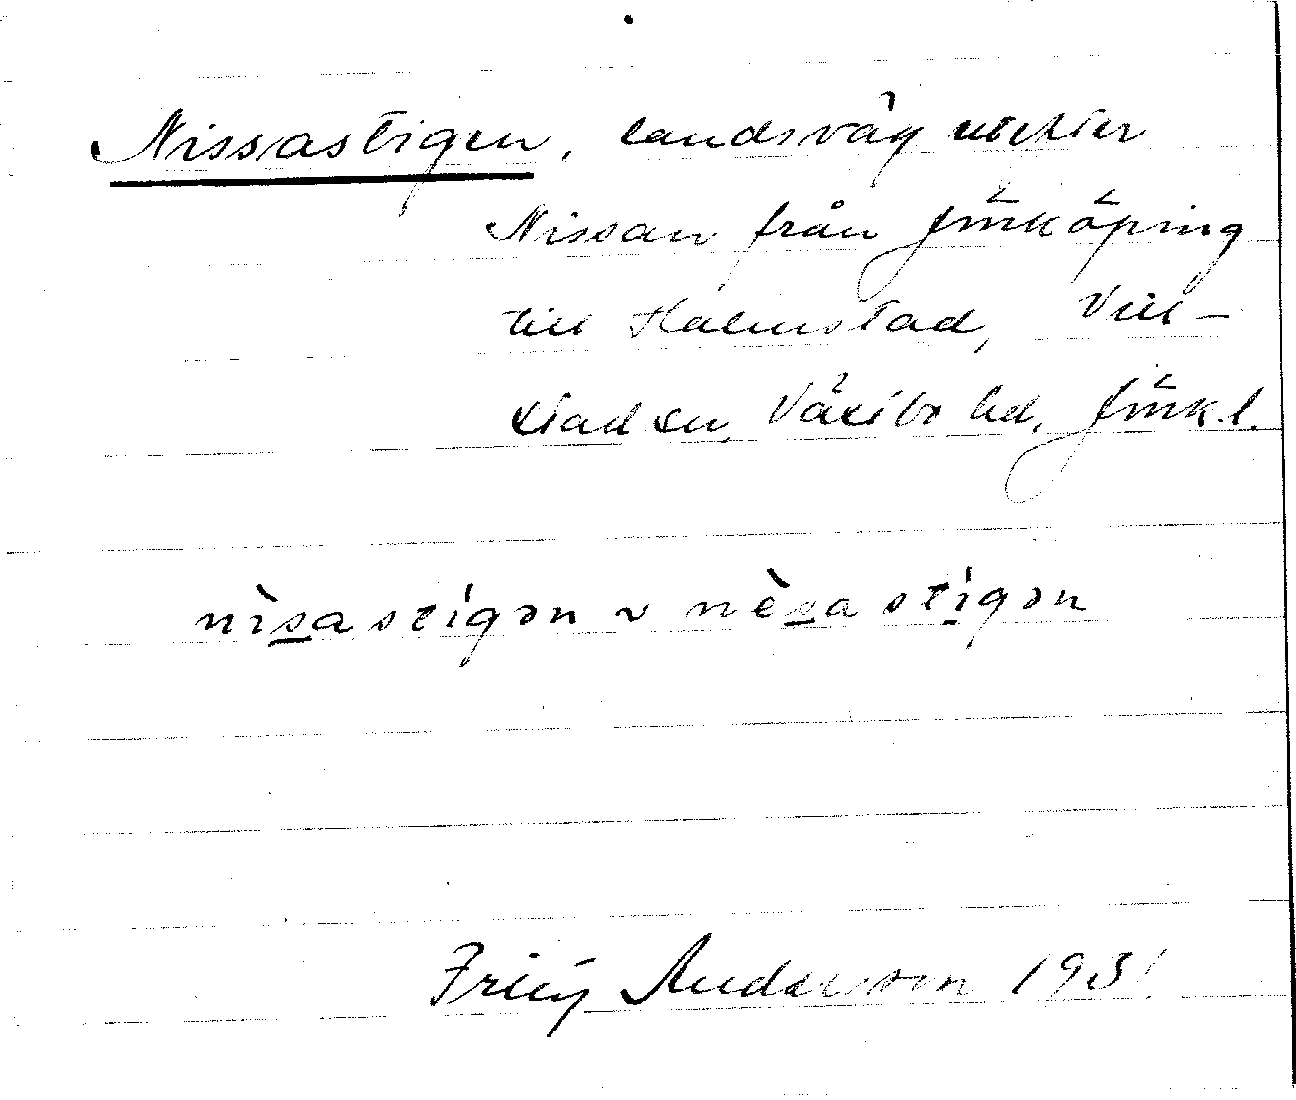 Nissastigen, landsväg utefter
Nissan från Jönköping
till Halmstad, Vill-
stads sn, Västbo hd, Jönk. l.
nìsastigən ~ nèsastigən
Frithj Anderson 1931